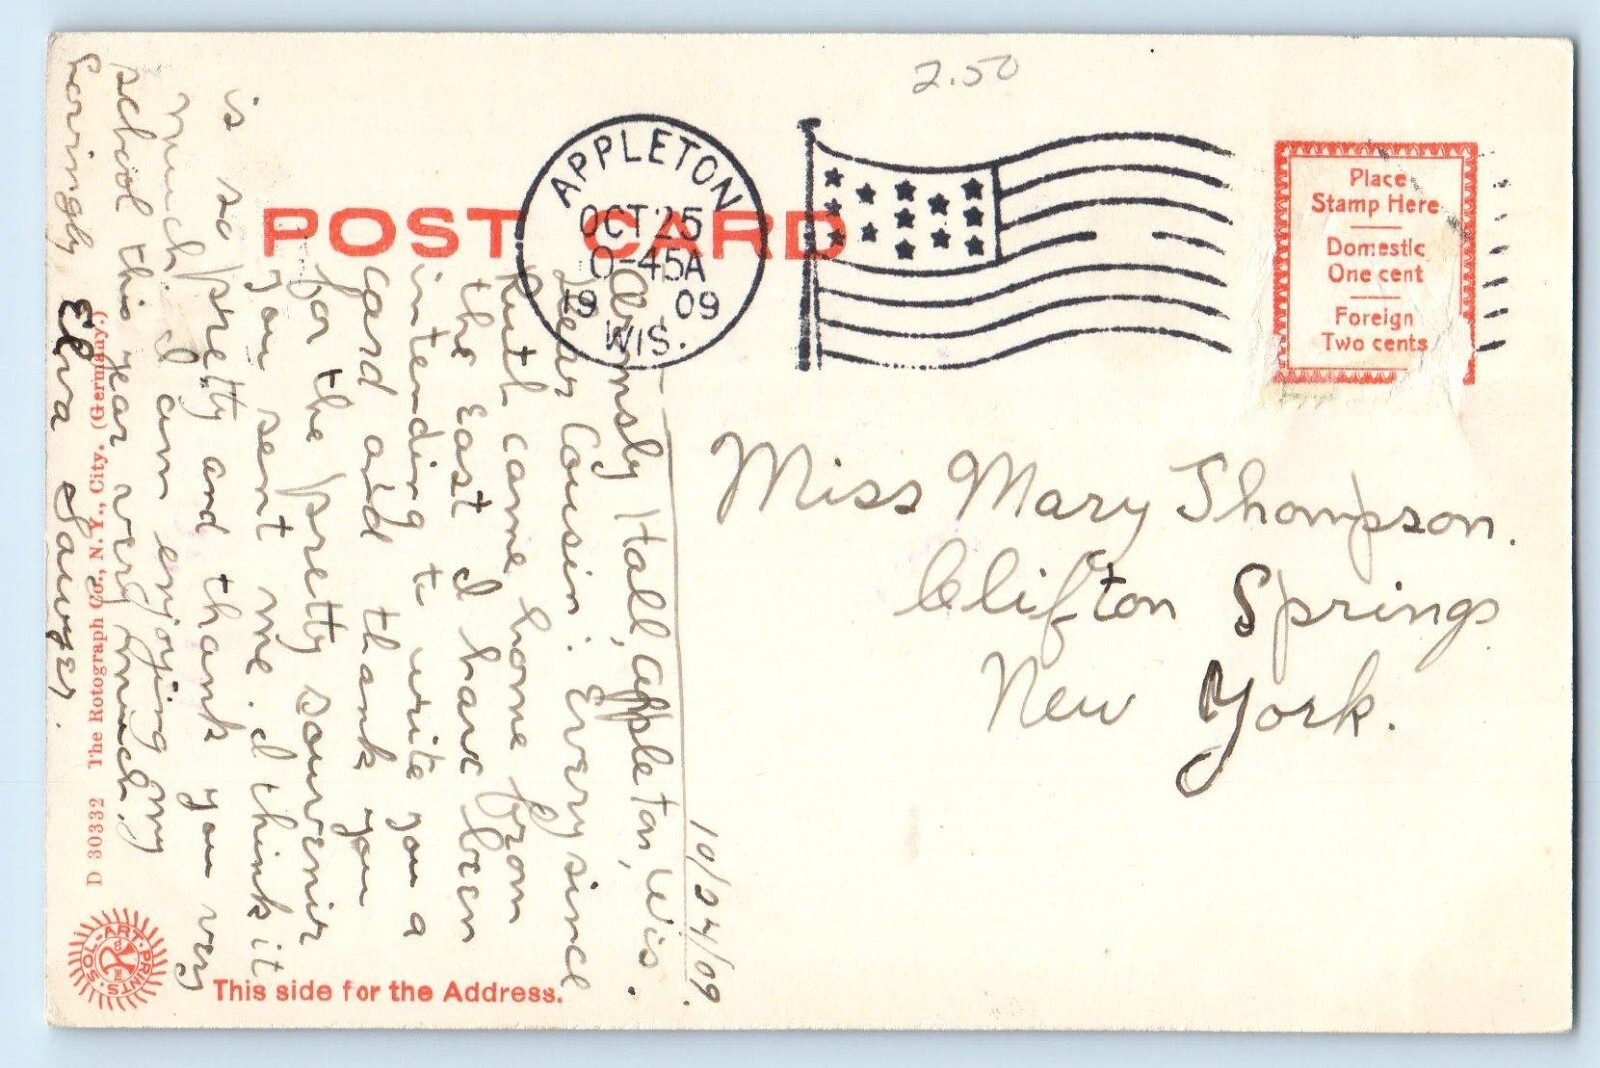 2.50
POST CARD
APPLETON
OCT 25
0-45A
19 09
WIS.
Place
Stamp Here
Domestic
One cent
Foreign
Two cents
Miss Mary Thompson.
Clifton Springs
New York.
10/24/09.
Ormsby Hall, Appleton, Wis.
Dear Cousin: Every since
Ruth came home from
the East I have been
intending to write you a
card and thank you
for the pretty souvenir
you sent me. I think it
is so pretty and thank you very
much. I am enjoying my
school this year very much.
Lovingly Elva Sawyer.
D 30332 The Rotograph Co., N. Y., City. (Germany.)
SOL-ART-PRINTS.
This side for the Address.